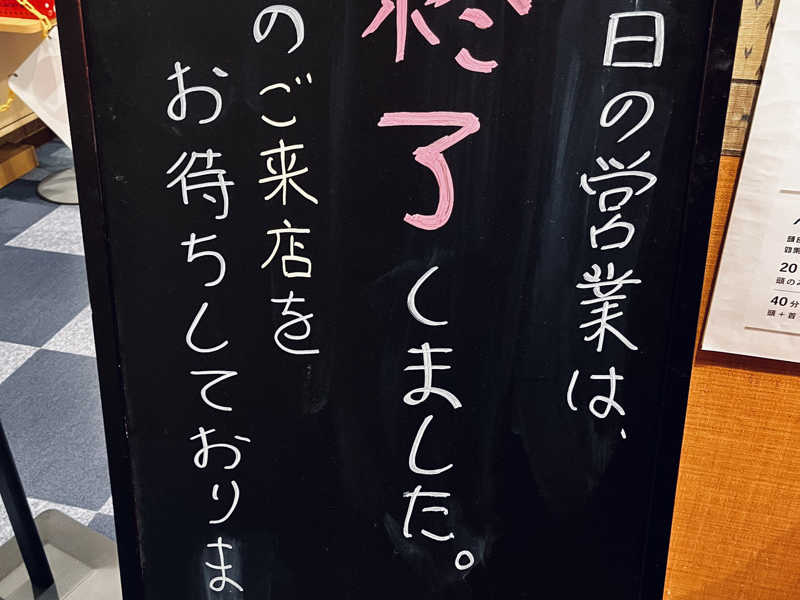 日の営業は、
終了しました。
のご来店を
お待ちしておりま
20
頭のみ
40分
頭+首